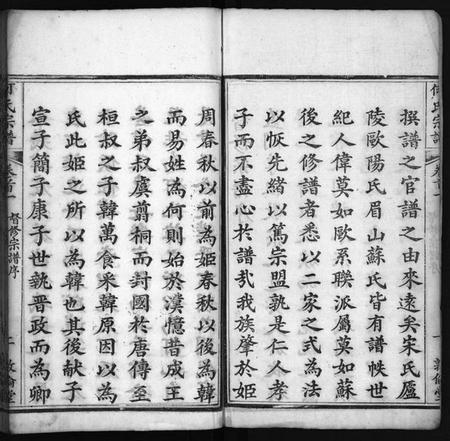 何氏宗譜
卷首
一
敦倫堂
撰譜之官譜之由來遠矣宋氏廬
陵歐陽氏眉山蘇氏皆有譜帙世
紀人偉莫如歐系聯派屬莫如蘇
後之修譜者悉以二家之式為法
以恢先緒以篤宗盟孰是仁人孝
子而不盡心於譜哉我族肇於姬
周春秋以前為姬春秋以後為韓
而易姓為何則始於漢憶昔成王
之弟叔虞翦桐而封國於唐傳至
桓叔之子韓萬食采韓原因以為
氏此姬之所以為韓也其後獻子
宣子簡子康子世執晉政而為卿
何氏宗譜
卷首
督修宗譜序
二
敦倫堂